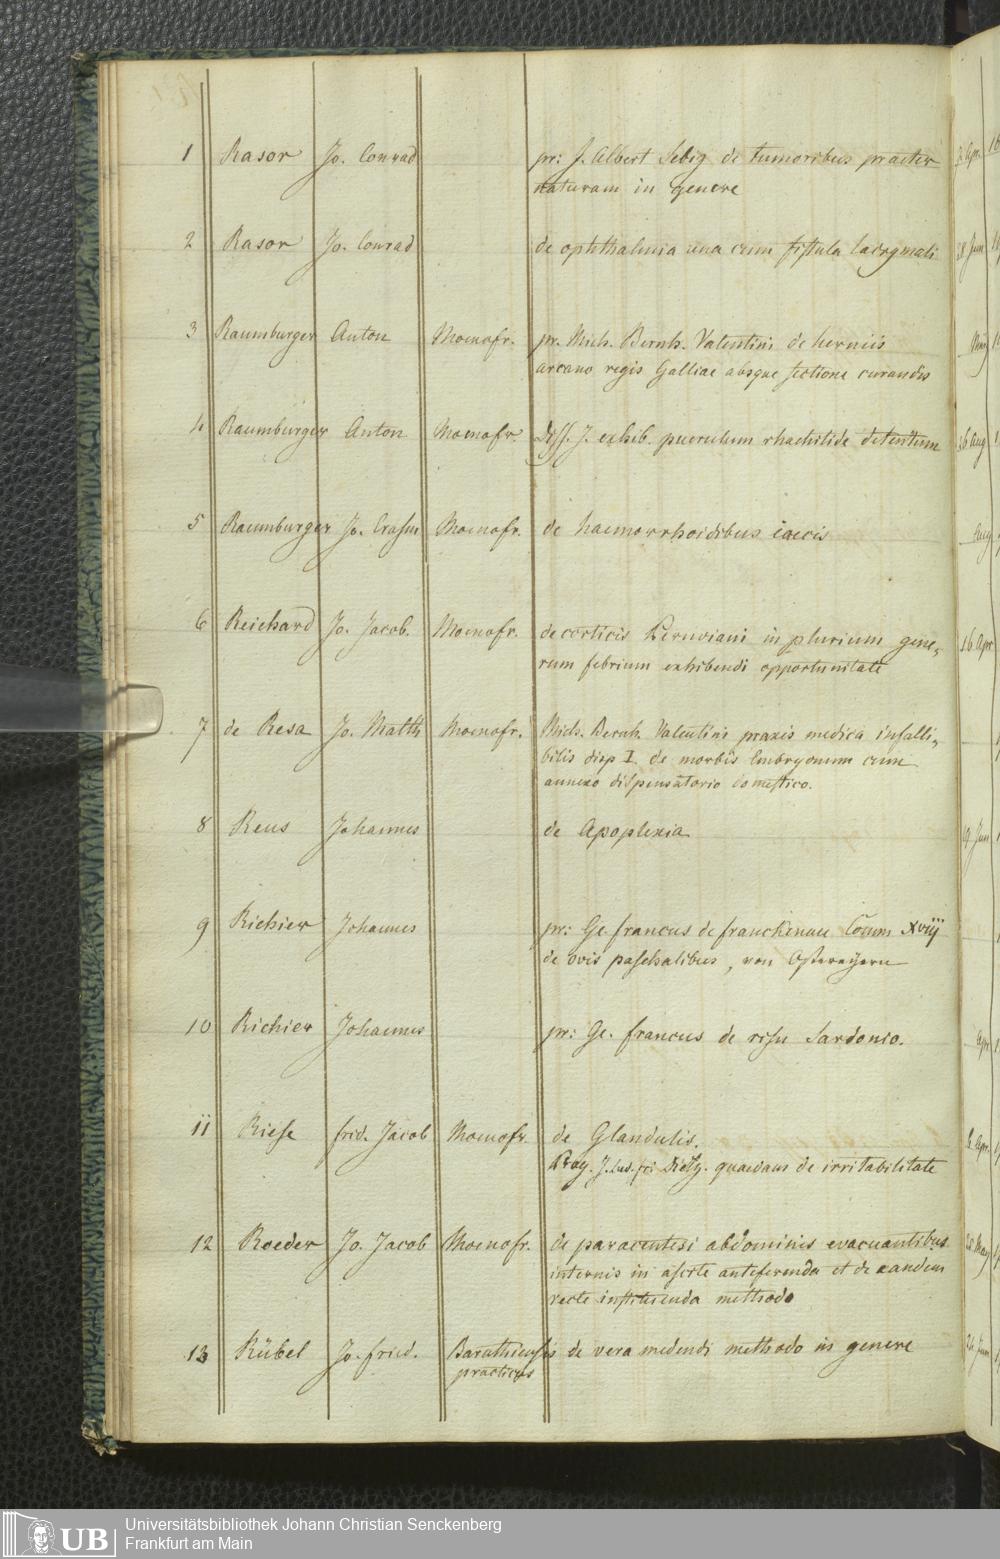 1 Rasor Jo. Conrad pr: J. Albert Sebiz de tumoribus praeter
naturam in genere
2 Rasor Jo. Conrad de ophthalmia una cum fistula lacrymali
3 Raumburger Anton Moenofr. pr. Mich. Bernh. Valentini de herniis
arcano regis Galliae absque sectione curandis
4 Raumburger Anton Moenofr. Diss. J. exhib. puerulum rhachitide detentum
5 Raumburger Jo. Erasm Moenofr. de haemorrhoidibus caecis
6 Reichard Jo. Jacob. Moenofr. de corticis Peruviani in plurium gene„
rum febrium exhibendi opportunitate
7 de Resa Jo. Matth Moenofr. Mich. Bernh. Valentini praxis medica infalli„
bilis disp I. de morbis Embryonum cum
annexo dispensatorio domestico.
8 Reus Johannes de Apoplexia
9 Richier Johannes pr: Ge. francus de franckenau Comm XVIII
de ovis paschalibus, von Ostereyern
10 Richier Johannes pr: Ge. francus de risu Sardonio.
11 Riese frid. Jacob Moenofr. de Glandulis.
Prog. Dietz. quaedam de irritabilitate
12 Roeder Jo. Jacob Moenofr. de paracentesi abdominis evacuantibus
internis in ascite anteferenda et de eandem
recte instituenda methodo
13 Rübel Jo. fried. Baruthiensis de vera medendi methodo in genere
practicus
16 Apr
26 Aug
Aug
19 Jun
Apr
UB
Universitätsbibliothek Johann Christian Senckenberg
Frankfurt am Main